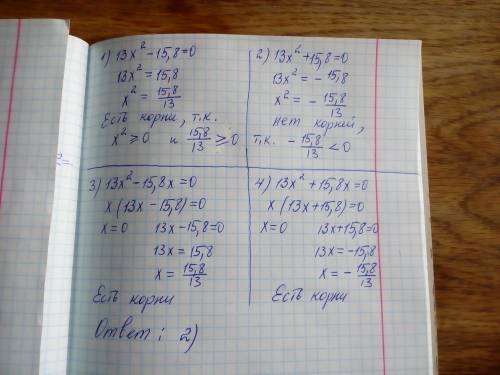 1) 13x² - 15,8 = 0
13x² = 15,8
x² = 15,8/13
Есть корни, т.к.
x² ≥ 0 и 15,8/13 ≥ 0
2) 13x² + 15,8 = 0
13x² = - 15,8
x² = - 15,8/13
нет корней,
т.к. - 15,8/13 < 0
3) 13x² - 15,8x = 0
x (13x - 15,8) = 0
x = 0 13x - 15,8 = 0
13x = 15,8
x = 15,8/13
Есть корни
4) 13x² + 15,8x = 0
x (13x + 15,8) = 0
x = 0 13x + 15,8 = 0
13x = - 15,8
x = - 15,8/13
Есть корни
Ответ: 2)